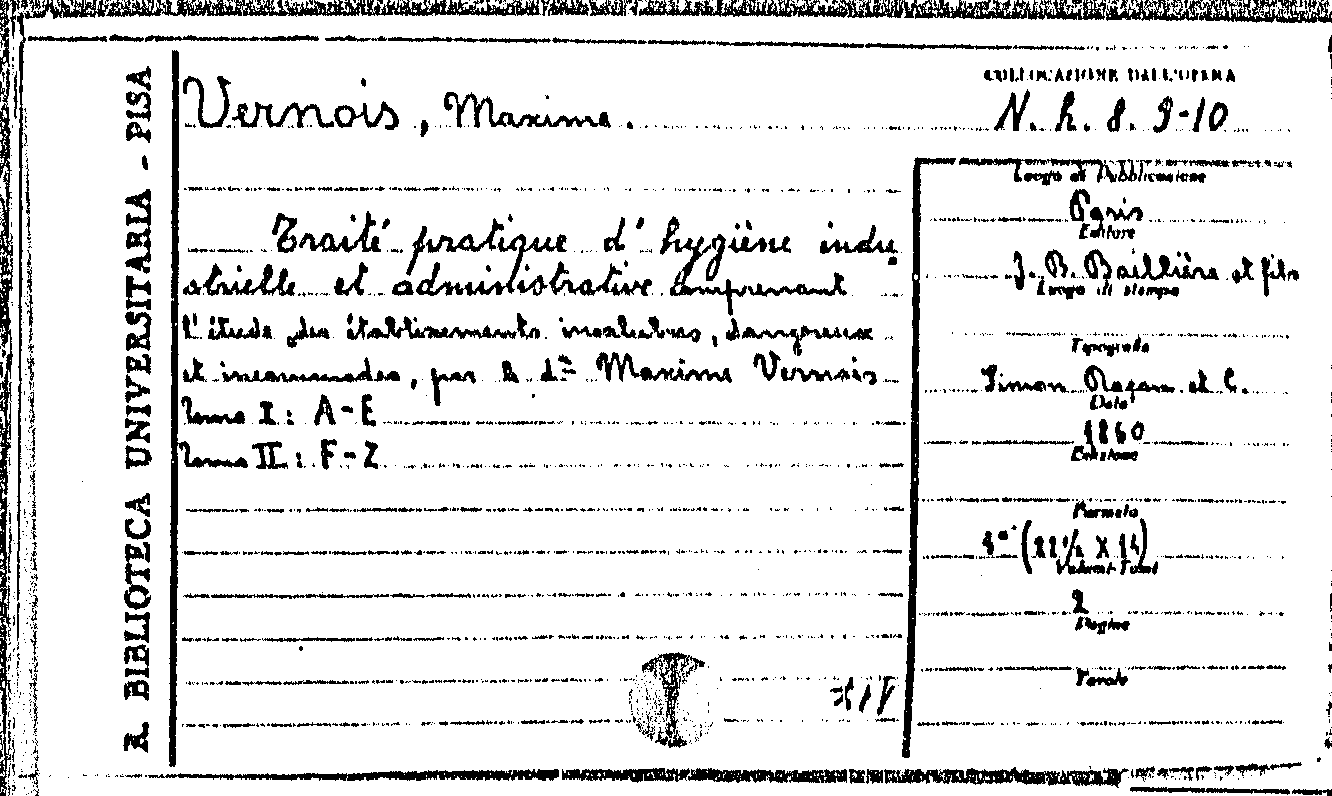 R. BIBLIOTECA UNIVERSITARIA - PISA
Vernois, Maxime.
Traité pratique d'hygiène indu
strielle et administrative comprenant
l'étude des établissements insalubres, dangereux
et incommodes, par le dr Maxime Vernois
Tome I : A-E
Tome II : F-Z
COLLOCAZIONE DALL'OPERA
N. h. 8. 9-10
Luogo di Pubblicazione
Paris
Editore
J. B. Baillière et fils
Luogo di stampa
Tipografia
Simon Raçon et C.
Data
1860
Edizione
Formato
8° (22½ X 14)
Volumi-Tomi
2
Pagine
Tavole